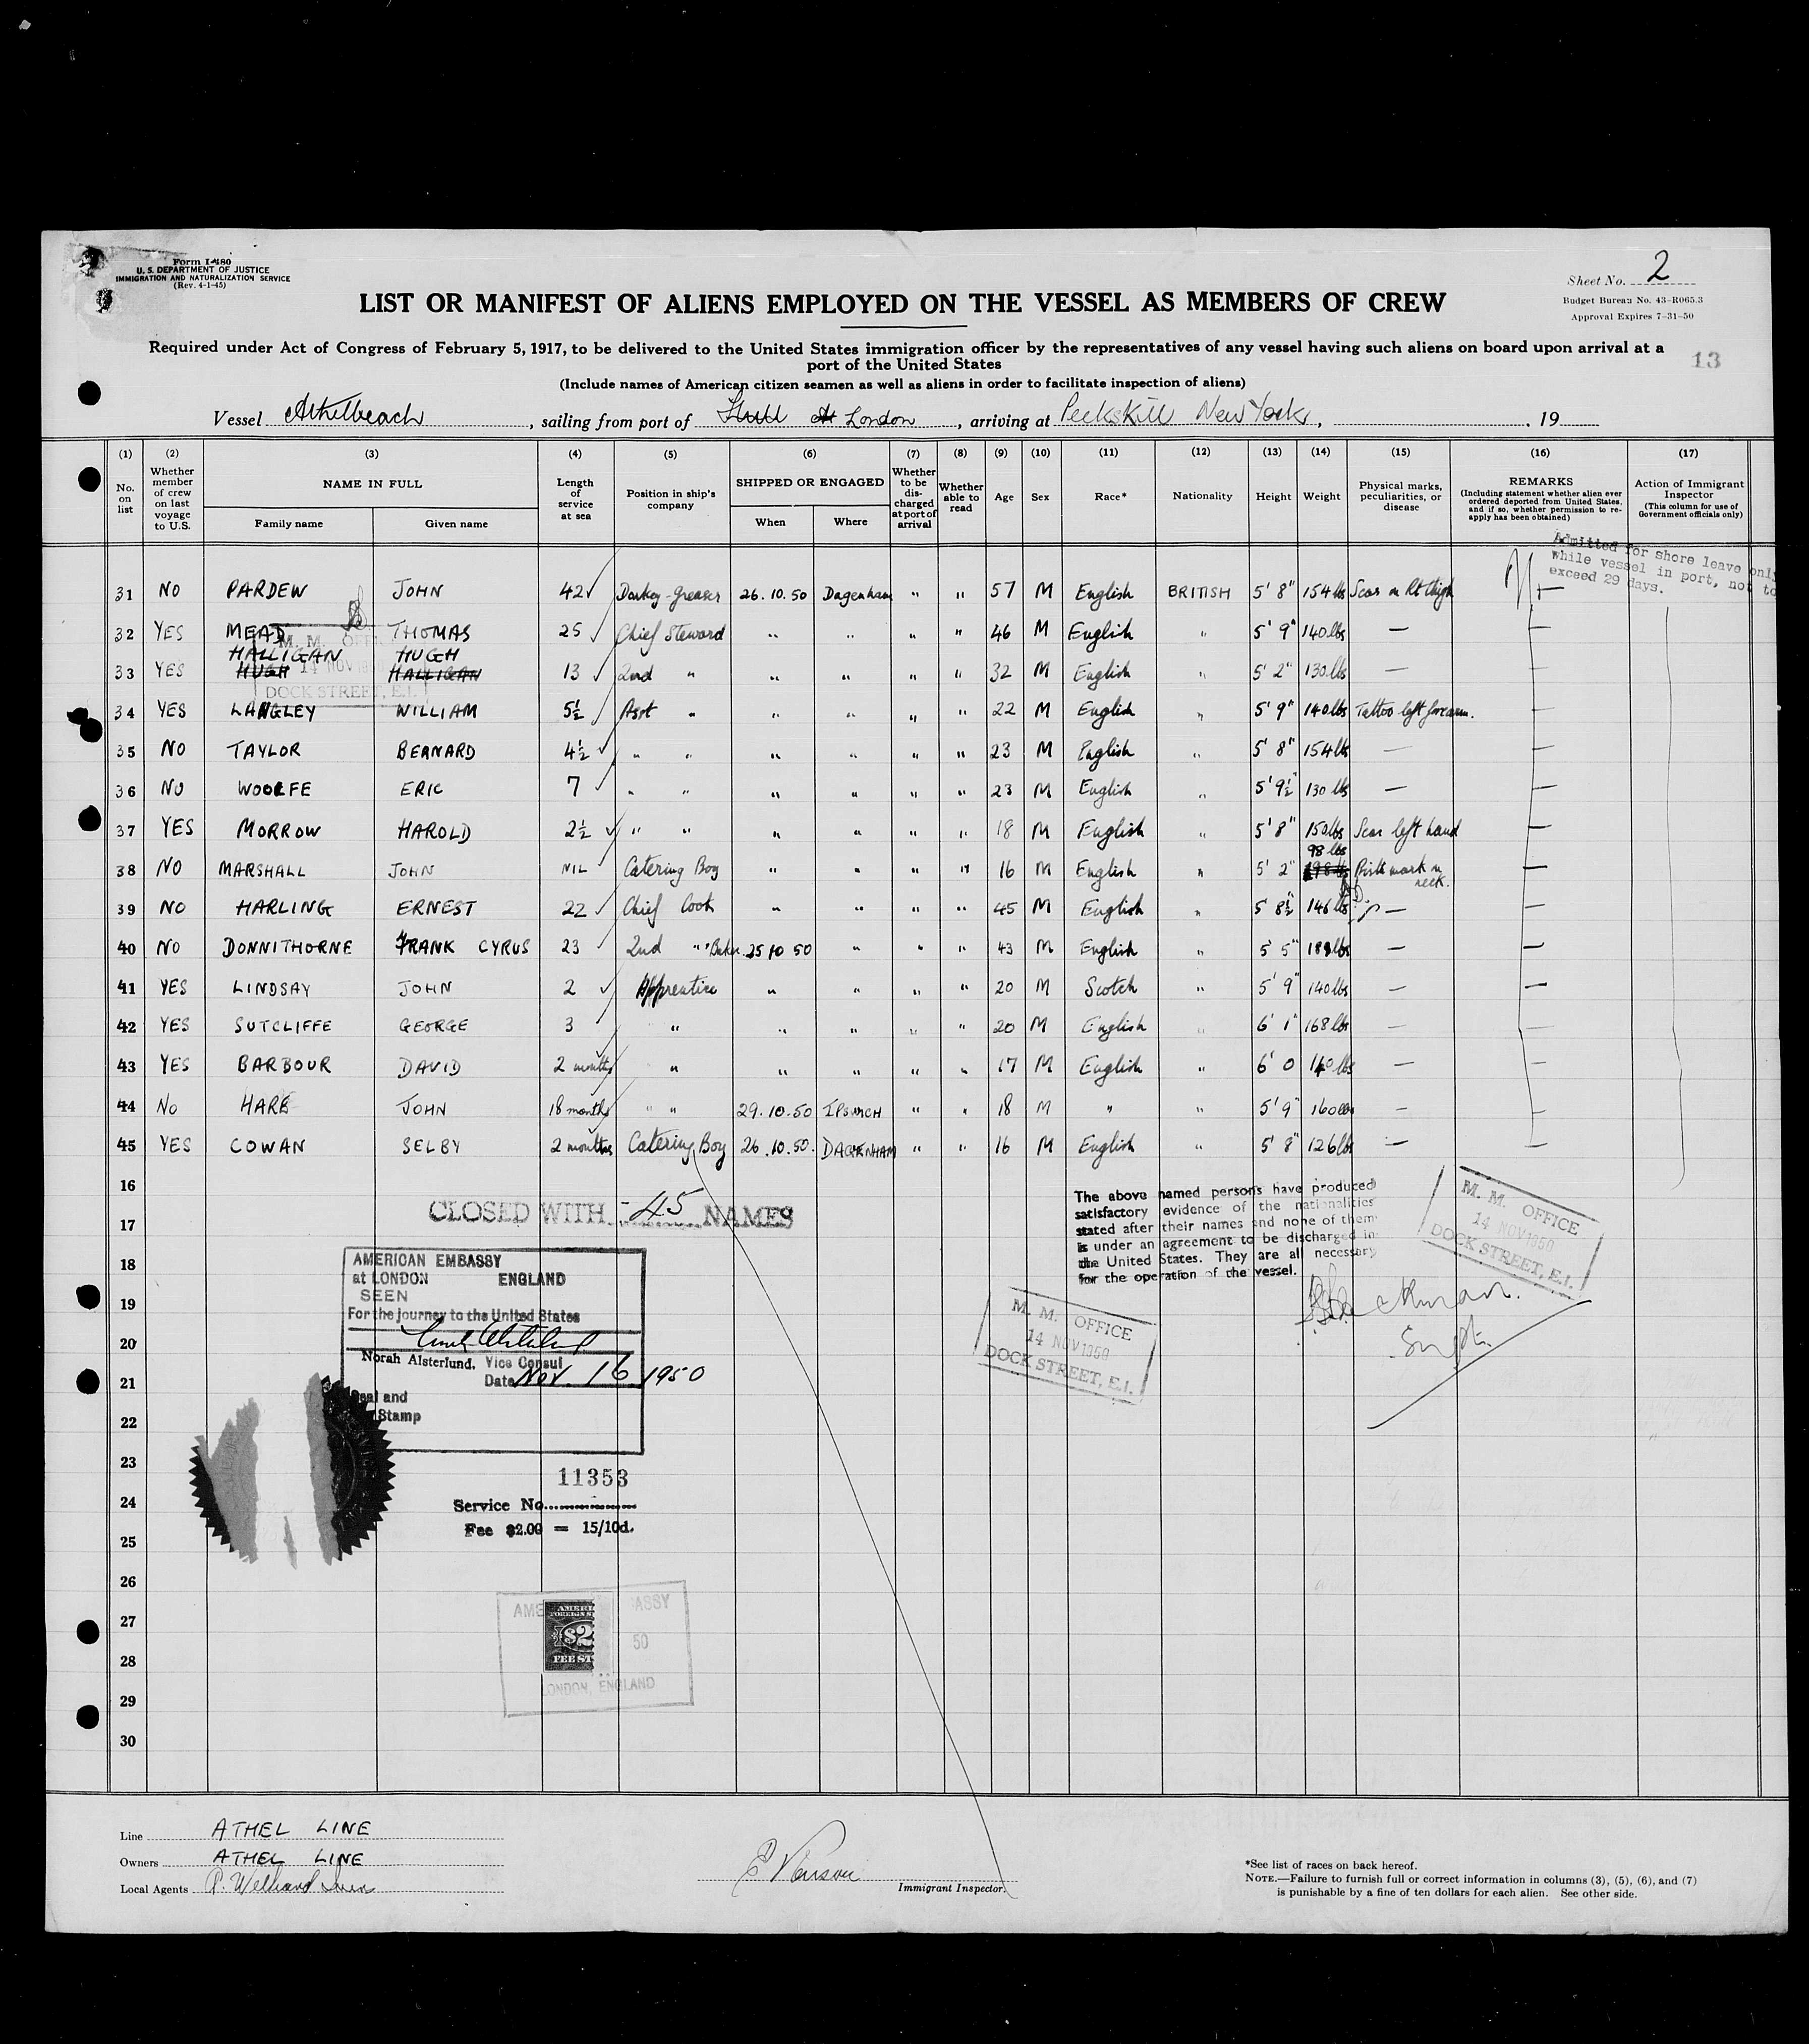 Form I-480
U. S. DEPARTMENT OF JUSTICE
IMMIGRATION AND NATURALIZATION SERVICE
(Rev. 4-1-45)
Sheet No. 2
Budget Bureau No. 43-R065.3
Approval Expires 7-31-50
LIST OR MANIFEST OF ALIENS EMPLOYED ON THE VESSEL AS MEMBERS OF CREW
Required under Act of Congress of February 5, 1917, to be delivered to the United States immigration officer by the representatives of any vessel having such aliens on board upon arrival at a
port of the United States
13
(Include names of American citizen seamen as well as aliens in order to facilitate inspection of aliens)
Vessel Athelbeach, sailing from port of Hull London, arriving at Peekskill New York, 19
(1) (2) (3) (4) (5) (6) (7) (8) (9) (10) (11) (12) (13) (14) (15) (16) (17)
No. on list
Whether member of crew on last voyage to U.S.
NAME IN FULL
Family name
Given name
Length of service at sea
Position in ship's company
SHIPPED OR ENGAGED
When
Where
Whether to be discharged at port of arrival
Whether able to read
Age
Sex
Race*
Nationality
Height
Weight
Physical marks, peculiarities, or disease
REMARKS
(Including statement whether alien ever ordered deported from United States, and if so, whether permission to re-apply has been obtained)
Action of Immigrant Inspector
(This column for use of Government officials only)
Admitted for shore leave only
while vessel in port, not to
exceed 29 days.
31 NO PARDEW JOHN 42 Donkey-greaser 26.10.50 Dagenham " " 57 M English BRITISH 5' 8" 154 lbs Scar on Rt thigh —
32 YES MEAD THOMAS 25 Chief Steward " " " 46 M English " 5' 9" 140 lbs — —
HALLIGAN HUGH
33 YES HUGH HALLIGAN 13 2nd " " " " " 32 M English " 5' 2" 130 lbs — —
34 YES LANGLEY WILLIAM 5½ Asst " " " " " 22 M English " 5' 9" 140 lbs Tattoo left forearm. —
35 NO TAYLOR BERNARD 4½ " " " " " " 23 M English " 5' 8" 154 lbs — —
36 NO WOOLFE ERIC 7 " " " " " " 23 M English " 5' 9½" 130 lbs — —
37 YES MORROW HAROLD 2½ " " " " " " 18 M English " 5' 8" 150 lbs Scar left hand —
98 lbs
38 NO MARSHALL JOHN NIL Catering Boy " " " " 16 M English " 5' 2" 198 lbs Birth mark on neck. —
39 NO HARLING ERNEST 22 Chief Cook " " " " 45 M English " 5' 8½" 146 lbs — —
40 NO DONNITHORNE FRANK CYRUS 23 2nd " " Baker 25 10 50 " " " 43 M English " 5' 5" lbs — —
41 YES LINDSAY JOHN 2 Apprentice " " " " 20 M Scotch " 5' 9" 140 lbs — —
42 YES SUTCLIFFE GEORGE 3 " " " " " 20 M English " 6' 1" 168 lbs — —
43 YES BARBOUR DAVID 2 months " " " " " 17 M English " 6' 0 140 lbs — —
44 NO HARE JOHN 18 months " " 29.10.50 IPSWICH " " 18 M " " 5' 9" 160 lbs — —
45 YES COWAN SELBY 2 months Catering Boy 26.10.50. DAGENHAM " " 16 M English " 5' 8" 126 lbs — —
M. M. OFFICE
14 NOV 1950
DOCK STREET, E.I.
16
17
18
19
20
21
22
23
24
25
26
27
28
29
30
CLOSED WITH -45 NAMES
The above named persons have produced
satisfactory evidence of the nationalities
stated after their names and none of them
is under an agreement to be discharged in
the United States. They are all necessary
for the operation of the vessel.
M. M. OFFICE
14 NOV 1950
DOCK STREET, E.I.
M. M. OFFICE
14 NOV 1950
DOCK STREET, E.I.
Supt.
AMERICAN EMBASSY
at LONDON ENGLAND
SEEN
For the journey to the United States
Norah Alsterlund, Vice Consul
Date Nov. 16 1950
Seal and
Stamp
11353
Service No.
Fee $2.00 = 15/10d.
AME ASSY
50
LONDON, ENGLAND
AMERI
FOREIGN S
$2
FEE ST
Line ATHEL LINE
Owners ATHEL LINE
Local Agents
Immigrant Inspector.
*See list of races on back hereof.
NOTE.—Failure to furnish full or correct information in columns (3), (5), (6), and (7)
is punishable by a fine of ten dollars for each alien. See other side.